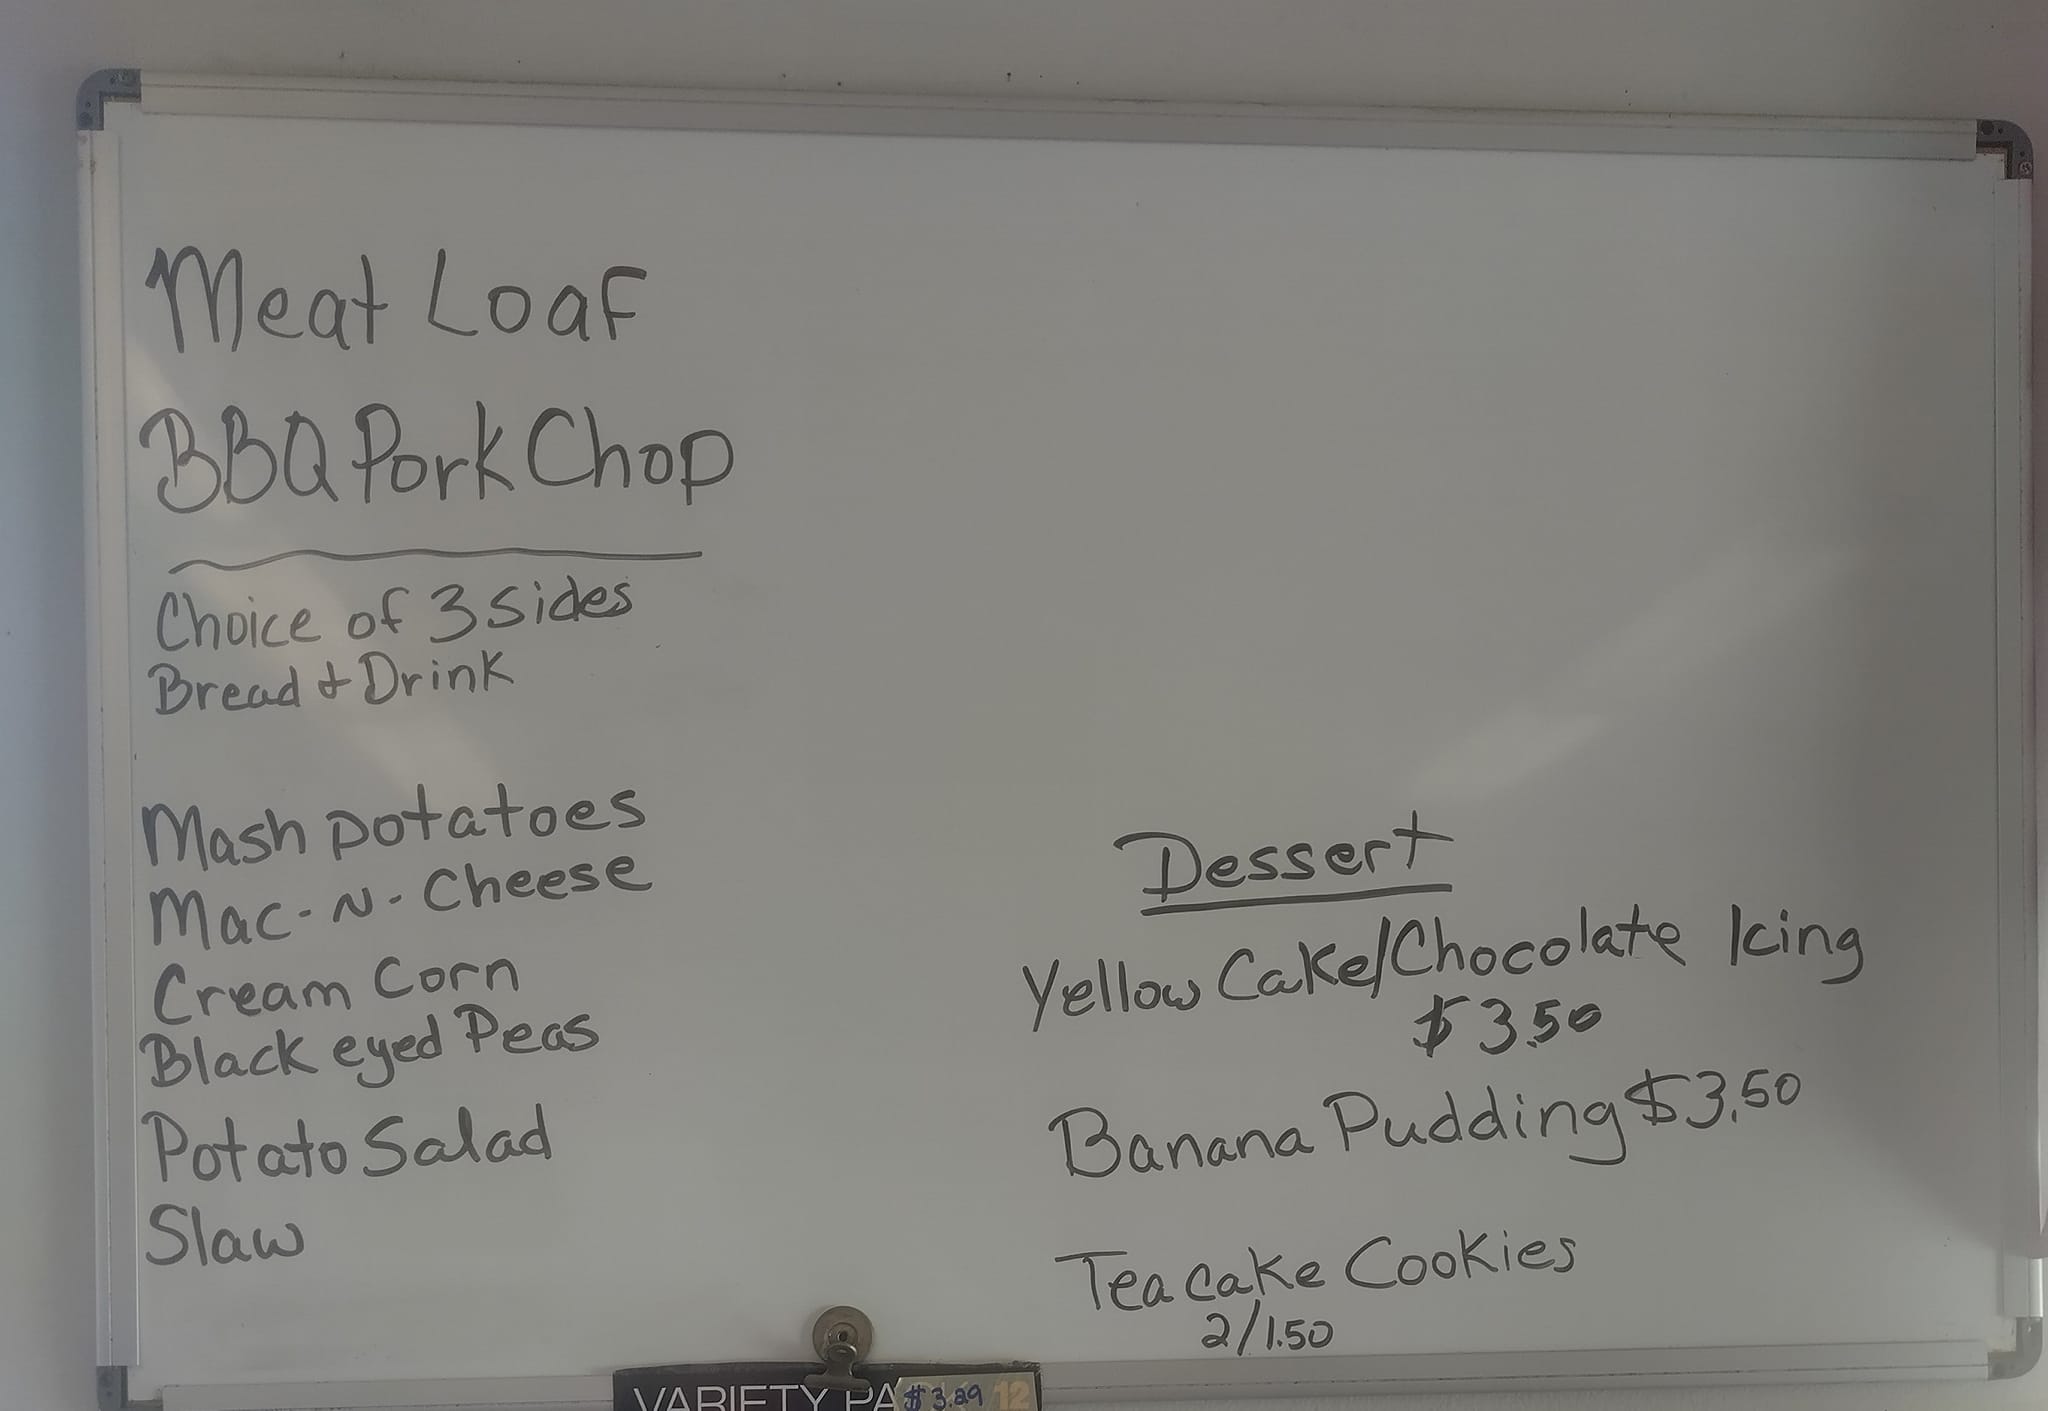 Meat Loaf
BBQ Pork Chop
Choice of 3 Sides
Bread + Drink
Mash potatoes
Mac-N-Cheese
Cream Corn
Black eyed Peas
Potato Salad
Slaw
Dessert
Yellow Cake/Chocolate Icing
$3.50
Banana Pudding $3.50
Tea cake Cookies
2/1.50
VARIETY PA $3.29 12